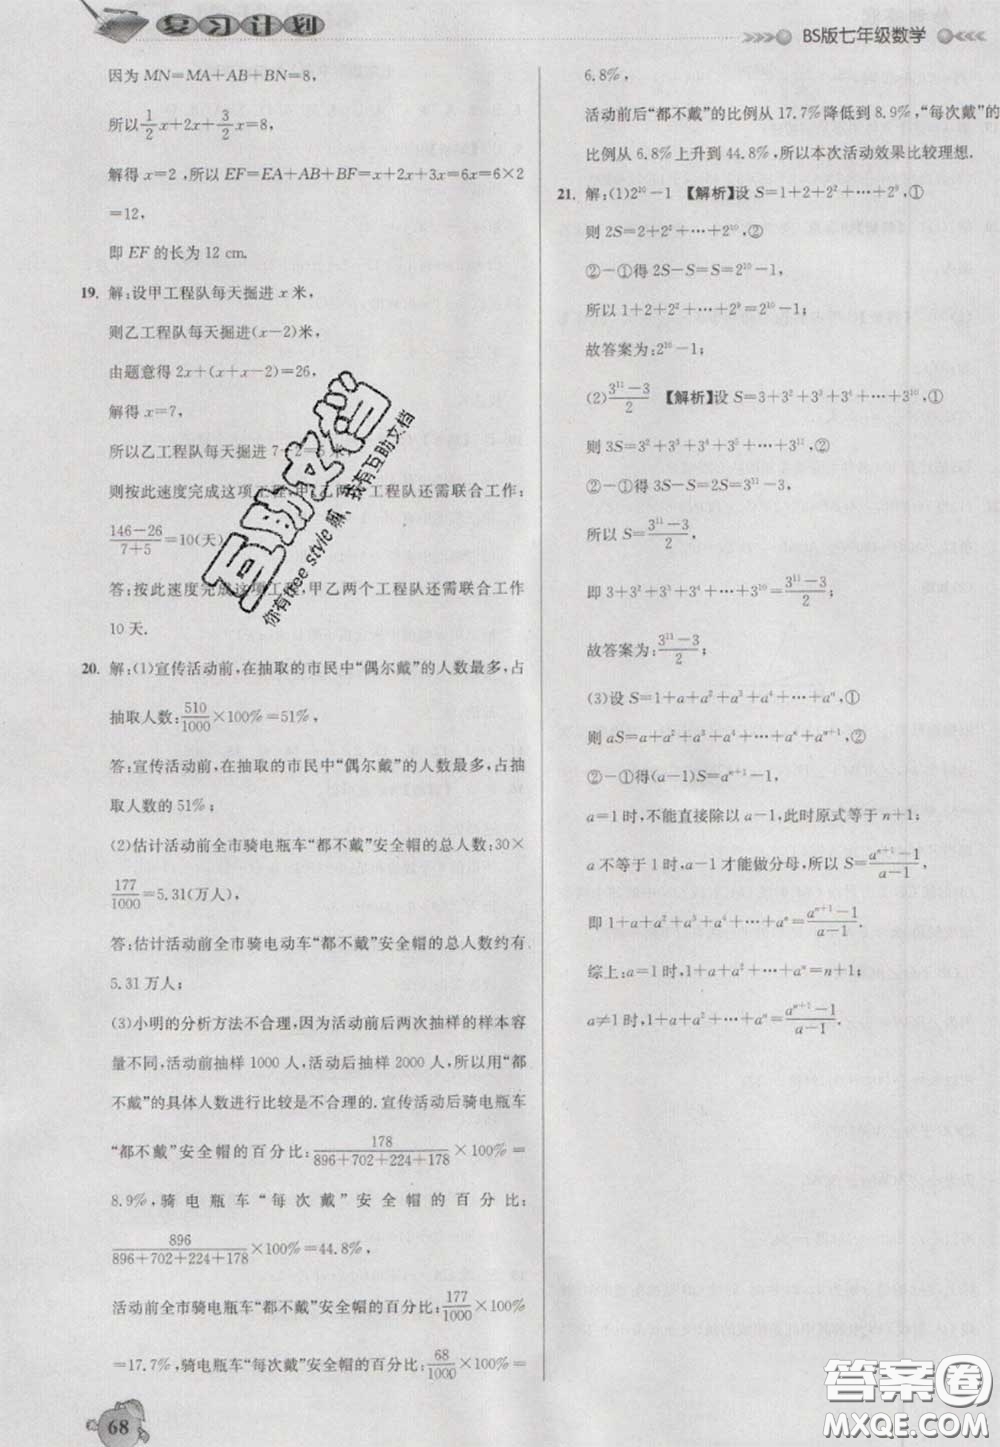 复习计划
BS版七年级数学
因为 MN=MA+AB+BN=8,
所以 1/2 x+2x+ 3/2 x=8,
解得 x=2，所以 EF=EA+AB+BF=x+2x+3x=6x=6×2
=12,
即 EF 的长为 12 cm.
19. 解:设甲工程队每天掘进 x 米,
则乙工程队每天掘进(x−2)米,
由题意得 2x+(x+x−2)=26,
解得 x=7,
所以乙工程队每天掘进 7−2=5 米,
则按此速度完成这项工程,甲、乙两个工程队还需联合工作:
(146−26)/(7+5)=10(天)
答:按此速度完成这项工程,甲乙两个工程队还需联合工作
10 天.
20. 解:(1)宣传活动前,在抽取的市民中“偶尔戴”的人数最多,占
抽取人数:510/1000×100%=51%,
答:宣传活动前,在抽取的市民中“偶尔戴”的人数最多,占抽
取人数的 51%;
(2)估计活动前全市骑电瓶车“都不戴”安全帽的总人数:30×
177/1000=5.31(万人),
答:估计活动前全市骑电动车“都不戴”安全帽的总人数约有
5.31 万人;
(3)小明的分析方法不合理,因为活动前后两次抽样的样本容
量不同,活动前抽样 1000 人,活动后抽样 2000 人,所以用“都
不戴”的具体人数进行比较是不合理的.宣传活动后骑电瓶车
“都不戴”安全帽的百分比:178/(896+702+224+178)×100%=
8.9%,骑电瓶车“每次戴”安全帽的百分比:
896/(896+702+224+178)×100%=44.8%,
活动前全市骑电瓶车“都不戴”安全帽的百分比:177/1000×100%
=17.7%,骑电瓶车“每次戴”安全帽的百分比:68/1000×100%=
6.8%,
活动前后“都不戴”的比例从 17.7%降低到 8.9%,“每次戴”的
比例从 6.8%上升到 44.8%,所以本次活动效果比较理想.
21. 解:(1)2¹⁰−1 【解析】设 S=1+2+2²+⋯+2⁹,①
则 2S=2+2²+⋯+2¹⁰,②
②−①得 2S−S=S=2¹⁰−1,
所以 1+2+2²+⋯+2⁹=2¹⁰−1;
故答案为:2¹⁰−1;
(2)(3¹¹−3)/2 【解析】设 S=3+3²+3³+3⁴+⋯+3¹⁰,①
则 3S=3²+3³+3⁴+3⁵+⋯+3¹¹,②
②−①得 3S−S=2S=3¹¹−3,
所以 S=(3¹¹−3)/2,
即 3+3²+3³+3⁴+⋯+3¹⁰=(3¹¹−3)/2;
故答案为:(3¹¹−3)/2;
(3)设 S=1+a+a²+a³+a⁴+⋯+aⁿ,①
则 aS=a+a²+a³+a⁴+⋯+aⁿ+aⁿ⁺¹,②
②−①得(a−1)S=aⁿ⁺¹−1,
a=1 时,不能直接除以 a−1,此时原式等于 n+1;
a 不等于 1 时,a−1 才能做分母,所以 S=(aⁿ⁺¹−1)/(a−1),
即 1+a+a²+a³+a⁴+⋯+aⁿ=(aⁿ⁺¹−1)/(a−1),
综上:a=1 时,1+a+a²+⋯+aⁿ=n+1;
a≠1 时,1+a+a²+⋯+aⁿ=(aⁿ⁺¹−1)/(a−1).
互助文档
你有free style 嘛、我有互助文档
68
答案圈
MXQE.COM